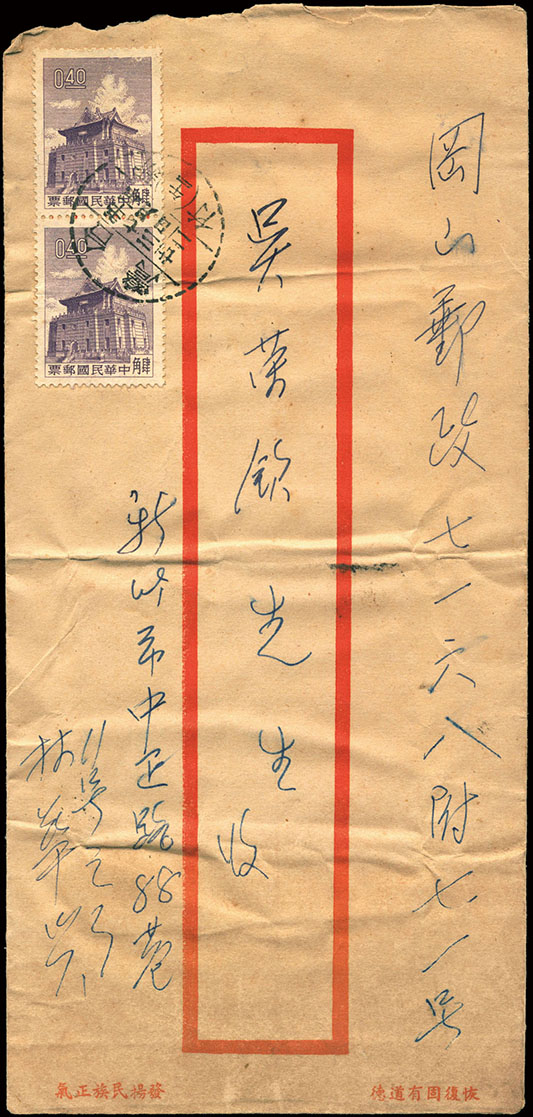 岡山郵政七一六八附七一号
吳欽先生收
新竹市中正路88巷
11号之
林華
0.40
肆角
中華民國郵票
0.40
肆角
中華民國郵票
恢復固有道德
發揚民族正氣